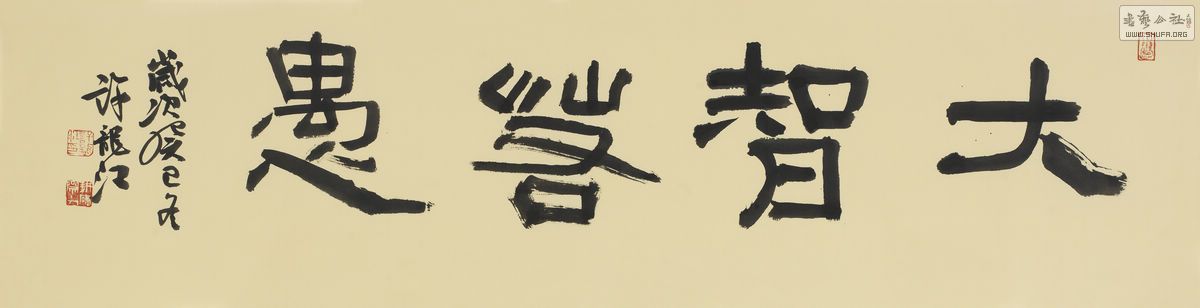 大智若愚
歲次癸巳冬
許龍江
書藝公社
WWW.SHUFA.ORG